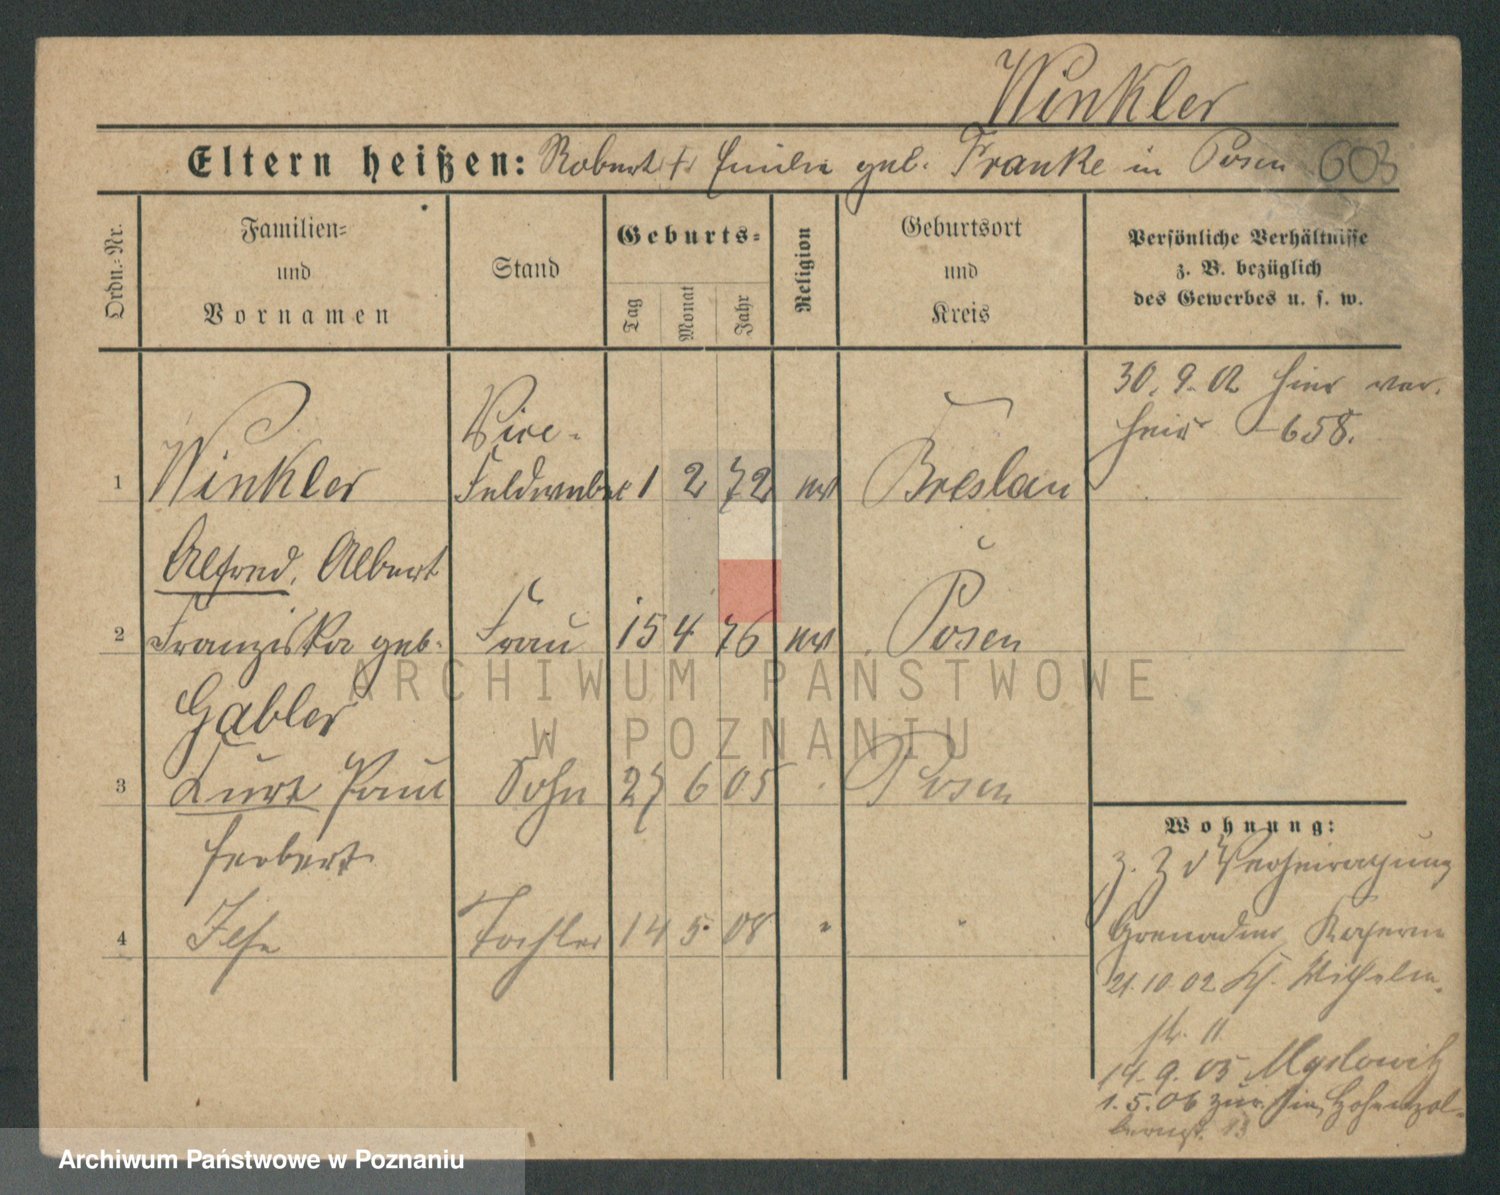 Winkler
Eltern heißen: Robert † Emilie geb. Franke in Posen 603
Ordn.-Nr.
Familien-
und
Vornamen
Stand
Geburts-
Tag
Monat
Jahr
Religion
Geburtsort
und
Kreis
Persönliche Verhältnisse
z. B. bezüglich
des Gewerbes u. s. w.
30. 9. 02 hier ver-
heir 658.
Vice-
1 Winkler Feldwebel 1 2 72 ev Breslau
Alfred, Albert
2 Franziska geb. Frau 15 4 76 ev Posen
Gabler
3 Kurt Paul Sohn 27 6 05 Posen
Herbert
4 Ilse Tochter 14 5. 08 "
Wohnung:
z. Z d Verheiratung
Grenadier Kaserne
21. 10. 02 Wilhelm-
str. 11
14. 9. 05 Myslowitz
1. 5. 06 zur. hier, Hohenzol-
lernstr. 13
ARCHIWUM PAŃSTWOWE
W POZNANIU
Archiwum Państwowe w Poznaniu